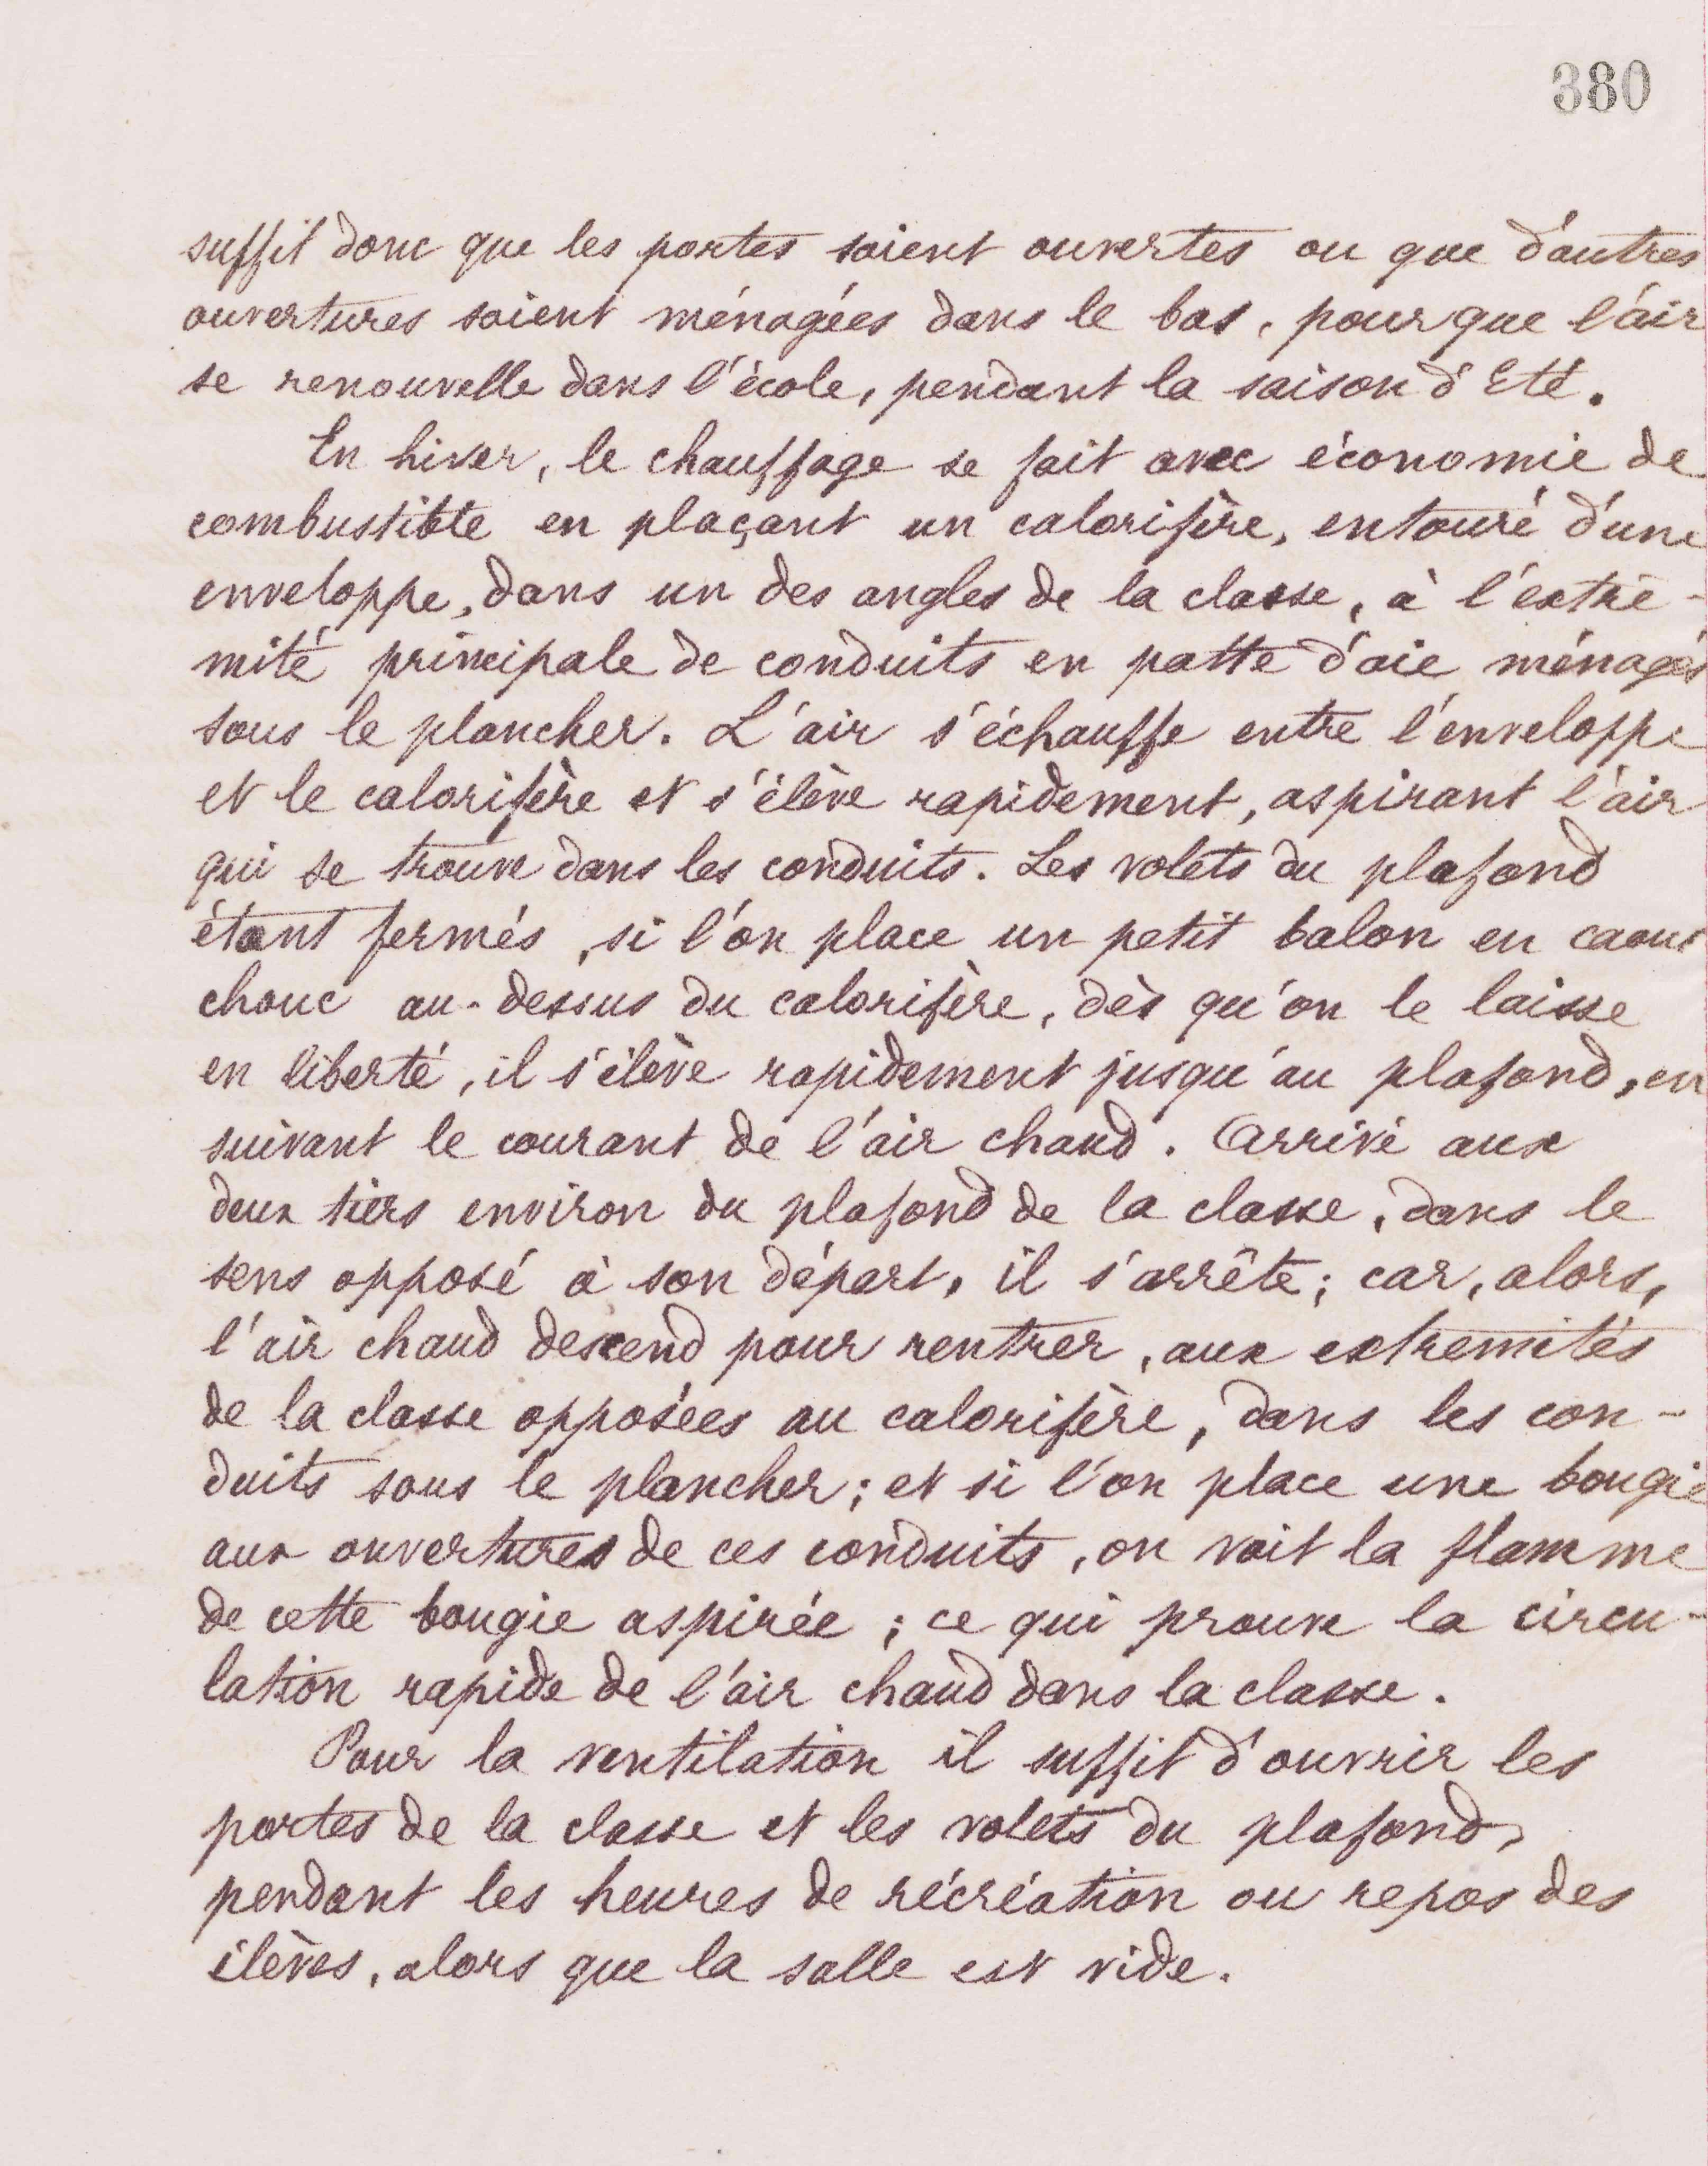 380
suffit donc que les portes soient ouvertes ou que d'autres
ouvertures soient ménagées dans le bas, pour que l'air
se renouvelle dans l'école, pendant la saison d'Eté.
En hiver, le chauffage se fait avec économie de
combustible en plaçant un calorifère, entouré d'une
enveloppe, dans un des angles de la classe, à l'extré-
mité principale de conduits en patte d'oie ménagés
sous le plancher. L'air s'échauffe entre l'enveloppe
et le calorifère et s'élève rapidement, aspirant l'air
qui se trouve dans les conduits. Les volets du plafond
étant fermés, si l'on place un petit balon en caout
chouc au-dessus du calorifère, dès qu'on le laisse
en liberté, il s'élève rapidement jusqu'au plafond, en
suivant le courant de l'air chaud. Arrivé aux
deux tiers environ du plafond de la classe, dans le
sens opposé à son départ, il s'arrête; car, alors,
l'air chaud descend pour rentrer, aux extremités
de la classe opposées au calorifère, dans les con-
duits sous le plancher; et si l'on place une bougie
aux ouvertures de ces conduits, on voit la flamme
de cette bougie aspirée; ce qui prouve la circu-
lation rapide de l'air chaud dans la classe.
Pour la ventilation il suffit d'ouvrir les
portes de la classe et les volets du plafond,
pendant les heures de récréation ou repos des
élèves, alors que la salle est vide.